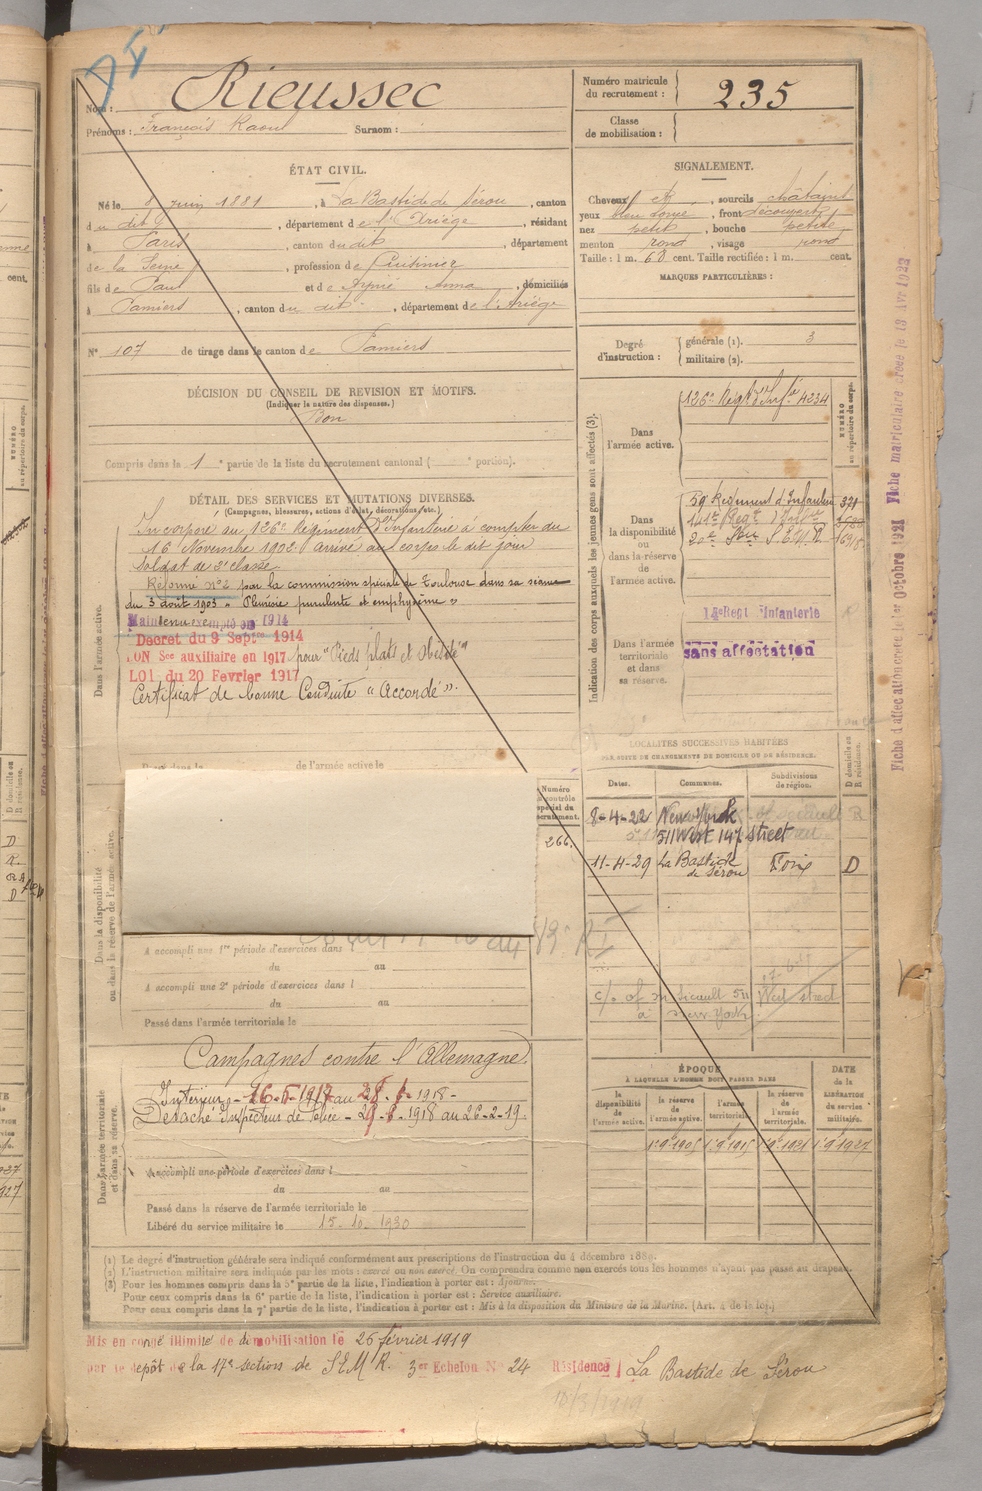 Rieussec
Nom :
Prénoms : François Raoul Surnom :
Numéro matricule
du recrutement : 235
Classe
de mobilisation :
ÉTAT CIVIL.
Né le 8 Juin 1881, à La Bastide de Sérou, canton
du dit, département de l'Ariège, résidant
à Paris, canton du dit, département
de la Seine, profession de Cuisinier
fils de Paul et de Anna, domiciliés
à Pamiers, canton du dit, département de l'Ariège
N° 107 de tirage dans le canton de Pamiers
SIGNALEMENT.
Cheveux et, sourcils châtains
yeux, front découvert
nez petit, bouche petite
menton rond, visage rond
Taille : 1 m. 60 cent. Taille rectifiée : 1 m. cent.
MARQUES PARTICULIÈRES :
Degré
d'instruction : générale (1). 3
militaire (2).
DÉCISION DU CONSEIL DE REVISION ET MOTIFS.
(Indiquer la nature des dispenses.)
Bon
Compris dans la 1e partie de la liste du recrutement cantonal ( e portion).
DÉTAIL DES SERVICES ET MUTATIONS DIVERSES.
(Campagnes, blessures, actions d'éclat, décorations, etc.)
Dans l'armée active.
Incorporé au 126e Régiment d'Infanterie à compter du
16 Novembre 1902 arrivé au corps le dit jour
soldat de 2e classe
Réformé n°2 par la commission spéciale de Toulouse dans sa séance
du 3 août 1903 « Pleurésie purulente et emphysème »
Maintenu exempté en 1914
Décret du 9 Septbre 1914
Sce auxiliaire en 1917 pour "Pieds plats et Obésité"
LOI du 20 Fevrier 1917
Certificat de bonne Conduite « Accordé ».
de l'armée active le
Indication des corps auxquels les jeunes gens sont affectés (3).
NUMÉRO
au répertoire du corps.
Dans
l'armée active.
126e Regt d'Infie 4234
Dans
la disponibilité
ou
dans la réserve
de
l'armée active.
59 Régiment d'Infanterie 321
141e Regt d'Infie
20e Son S.E.M.R.
Dans l'armée
territoriale
et dans
sa réserve.
15e Regt Infanterie
sans affectation
LOCALITÉS SUCCESSIVES HABITÉES
PAR SUITE DE CHANGEMENTS DE DOMICILE OU DE RÉSIDENCE.
Dates. Communes. Subdivisions
de région. D domicile ou
R résidence.
8-4-22 New York R
511 West 147 street
11-4-29 La Bastide
de Sérou Foix D
c/o of m 511 West street
à New-York
Numéro
au contrôle
spécial du
recrutement.
266.
Dans la disponibilité
ou dans la réserve de l'armée active.
A accompli une 1re période d'exercices dans
du au
A accompli une 2e période d'exercices dans l
du au
Passé dans l'armée territoriale le
Dans l'armée territoriale
et dans sa réserve.
Campagnes contre l'Allemagne
Intérieur - 16-5-1917 au 28-6-1918-
Détaché Inspecteur de - 29-6-1918 au 26-2-19.
A accompli une période d'exercices dans l
du au
Passé dans la réserve de l'armée territoriale le
Libéré du service militaire le 15-10-1930
ÉPOQUE
À LAQUELLE L'HOMME DOIT PASSER DANS
la
disponibilité
de
l'armée active. la réserve
de
l'armée active. l'armée
territoriale. la réserve
de
l'armée
territoriale.
DATE
de la
LIBÉRATION
du service
militaire.
1.9bre 1905 1.9bre 1915 1.9bre 1921 1.9bre 1927
(1) Le degré d'instruction générale sera indiqué conformément aux prescriptions de l'instruction du 4 décembre 1889.
(2) L'instruction militaire sera indiquée par les mots : exercé ou non exercé. On comprendra comme non exercés tous les hommes n'ayant pas passé au drapeau.
(3) Pour les hommes compris dans la 5e partie de la liste, l'indication à porter est : Ajourné.
Pour ceux compris dans la 6e partie de la liste, l'indication à porter est : Service auxiliaire.
Pour ceux compris dans la 7e partie de la liste, l'indication à porter est : Mis à la disposition du Ministre de la Marine. (Art. 4 de la loi.)
Mis en congé illimité de démobilisation le 26 février 1919
par le dépôt de la 17e section de S.E.M.R. 3me Echelon N° 24 Résidence La Bastide de Sérou
Fiche d'affectation créée le 1er Octobre 1921 Fiche matriculaire créée le 13 Avr 1922